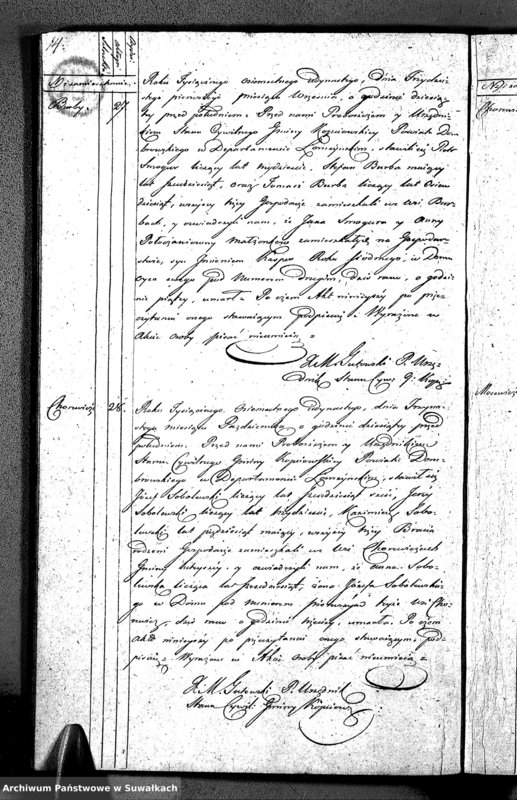 14.
Burby. 27
Roku Tysiącznego osiemsetnego iedynastego, dnia Trzydzie-
stego pierwszego miesiąca Września, o godzinie dziesią-
ty przed południem. Przed nami Proboszczem y Urzędni-
kiem Stanu Cywilnego Gminy Kopciowskiey Powiatu Dom-
browskiego w Departamencie Łomżyńskim stawili się Piotr
Smogur liczący lat trzydzieście, Stefan Burba maiący
lat sześćdziesiąt, oraz Tomasz Burba liczący lat osiem
dziesiąt, wszyscy trzey Gospodarze zamieszkali we wsi Bur-
bach, y oświadczyli nam, że Jana Smogura y Anny
małżonków zamieszkałych na Gospodar-
stwie, syn Imieniem Kasper Roku siódmego, w Domu
oyca swego pod Numerem drugim, dziś rano, o godzi-
nie piątey, umarł. Po czem Akt ninieyszy po prze-
czytaniu onego stawaiącym podpisuię. Wyrażone w
Akcie osoby pisać nieumieią
X. M. Gutowski P. Urzę-
dnik Stanu Cyw. G. Kopc.
Chorewicze 28.
Roku Tysiącznego Osiemsetnego iedynastego, dnia Trzyna-
stego miesiąca Października o godzinie dziesiątey przed
południem. Przed nami Proboszczem y Urzędnikiem
Stanu Cywilnego Gminy Kopciowskiey Powiatu Dom-
browskiego w Departamencie Łomżyńskim, stawili się
Józef Sobolewski liczący lat sześćdziesiąt sześć, Jerzy
Sobolewski liczący lat trzydzieście, Kazimierz Sobo-
lewski lat pięćdziesiąt maiący, wszyscy trzey Bracia
rodzeni Gospodarze zamieszkali we wsi Chorewiczach
Gminy tuteyszey, y oświadczyli nam, że Anna Sobo-
lewska licząca lat sześćdziesiąt, żona Józefa Sobolewskie-
go w Domu pod numerem pierwszym teyże wsi Cho-
rewicz, dziś rano o godzinie trzeciey, umarła. Po czem
Akt ninieyszy po przeczytaniu onego stawaiącym, pod-
pisuię. Wyrażone w Akcie osoby pisać nieumieią
X. M. Gutowski P. Urzędnik
Stanu Cywil. Gminy Kopciow.
Archiwum Państwowe w Suwałkach